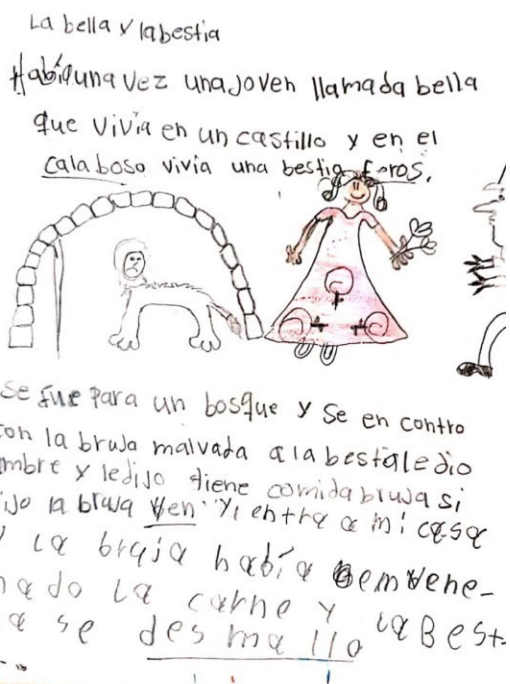 La bella y la bestia
Había una vez una joven llamada bella
que vivía en un castillo y en el
calaboso vivia una bestia feros.
se fue para un bosque y se en contro
con la bruja malvada a la bestia le dio
ambre y le dijo tiene comida bruja si
ijo la bruja ven y entra a mi casa
y la bruja había
nado la carne y
a se desmallo la Best